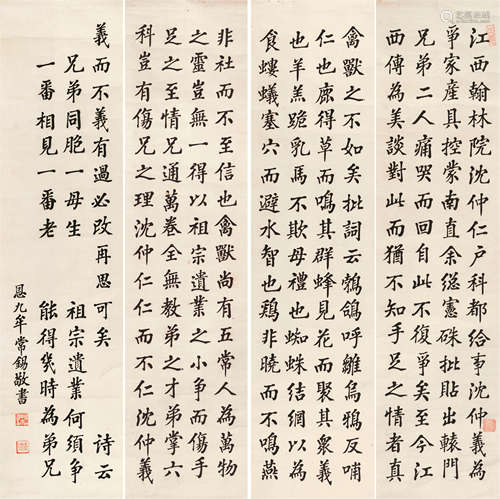 江西翰林院沈仲仁户科都給事沈仲義為
爭家産具控蒙南直余總憲硃批貼出轅門
兄弟二人痛哭而回自此不復爭矣至今江
西傳為美談對此而猶不知手足之情者真
禽獸之不如矣批詞云鵓鴿呼雛烏鴉反哺
仁也鹿得草而鳴其群蜂見花而聚其衆義
也羊羔跪乳馬不欺母禮也蜘蛛結網以為
食螻蟻塞穴而避水智也鷄非曉而不鳴燕
非社而不至信也禽獸尚有五常人為萬物
之靈豈無一得以祖宗遺業之小爭而傷手
足之至情兄通萬卷全無教弟之才弟掌六
科豈有傷兄之理沈仲仁仁而不仁沈仲義
義而不義有過必改再思可矣 詩云
兄弟同胞一母生 祖宗遺業何須爭
一番相見一番老 能得幾時為弟兄
恩九牟常錫敬書